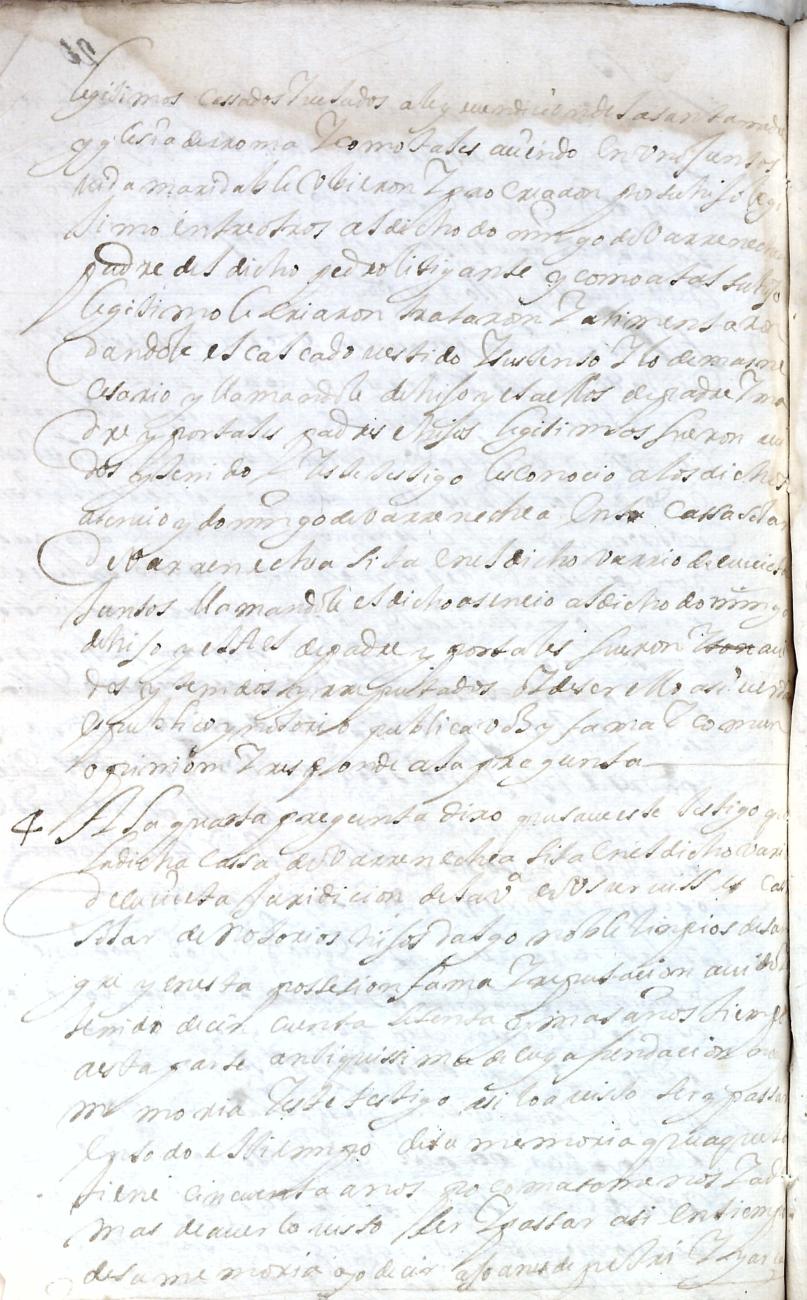 legitimos cassados Velados a ley e vendicion de la santa madre
yglesia de rroma Y como tales aviendo en uno Juntos
vida maridable Obieron Y pro criaron por su hijo legi
timo entre otros al dicho domingo de Varrenechea
padre del dicho pedro litigante y como a tal su hijo
legitimo le criaron trataron Y alimentaron
dandole el calcado vestido Y sustento Y lo demas ne
cesario y llamandole de hijo y el a ellos de padre Y ma
dre y por tales padres e hijos legitimos fueron avi
dos y tenidos Y este testigo les conocio a los dichos
asencio y domingo de Varrenechea En su cassa solar
de Varrenechea sita en el dicho varrio de
Juntos llamandole el dicho asencio al dicho domingo
de hijo y el a el de padre y por tales fueron avi
dos y tenidos y rreputados Y de ser ello asi verdad
es publico y notorio publica voz y fama Y comun
opinion Y responde a la pregunta
4 A la quarta pregunta dixo que save este testigo que
la dicha cassa de Varrenechea sita en el dicho varrio
Juridicion de la va de es cassa
solar de notorios hijos dalgo noble limpios de san
gre y en esta possesion fama Y reputacion avido y
tenido de cin cuenta setenta y mas años tiempo
a esta parte antiquissima de cuya fundacion no
memoria Y este testigo asi lo a visto ser y passar
En todo el tiempo de su memoria que a que la
tiene cinquenta años poco mas o menos Y ade
mas de averlo visto ser Y passar asi En tiempo
de su memoria oyo decir a Joanes de